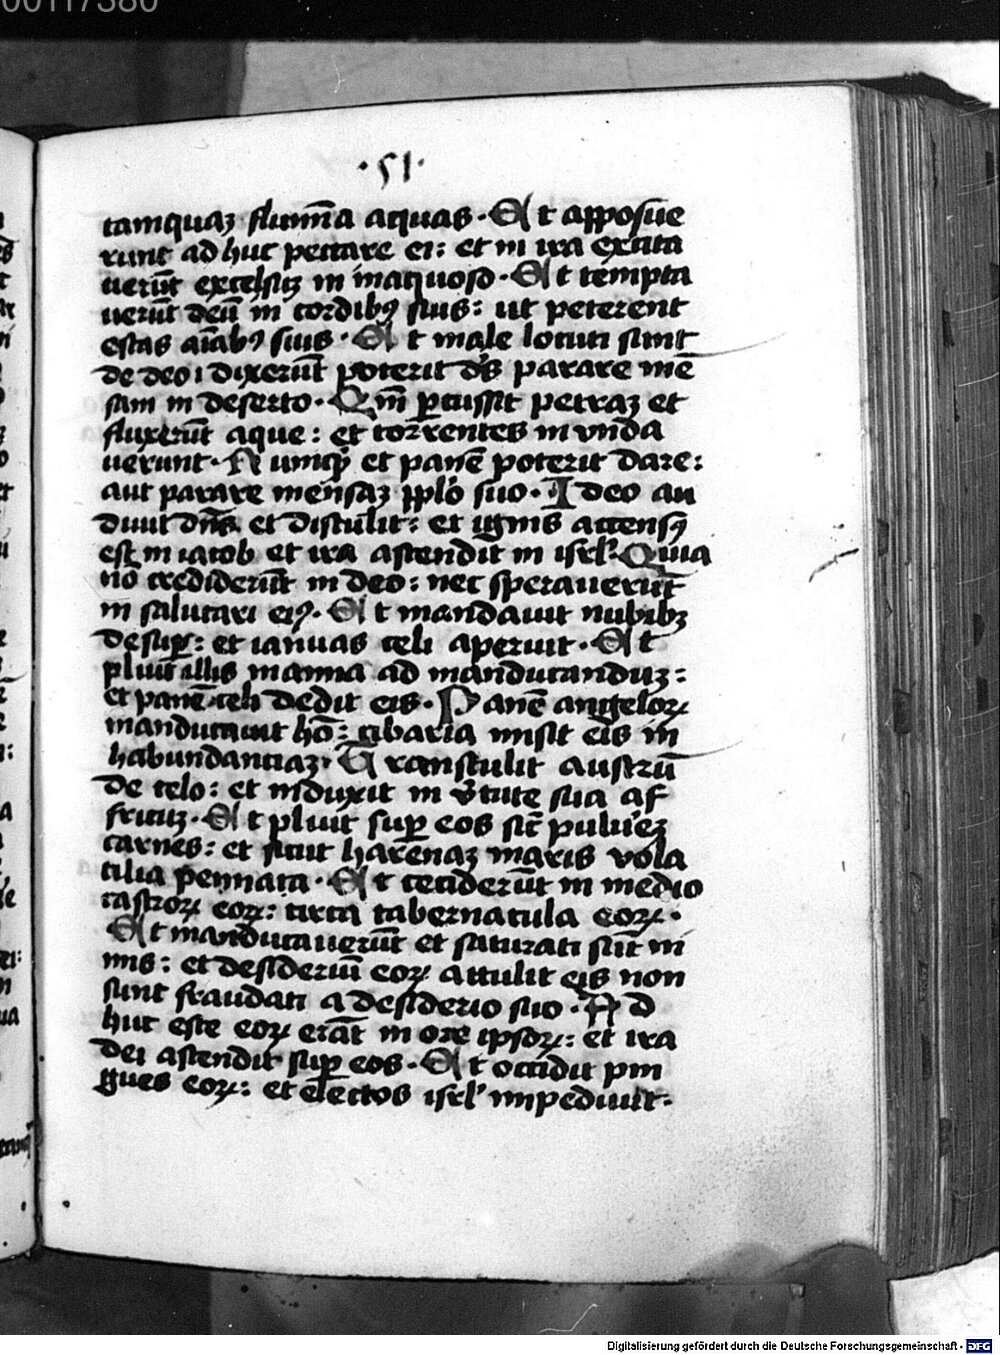 00117380
·51·
tamquaz flumīa aquas· Et apposue
runt ad huc peccare ei: et in ira excita
uerūt excelsuz in inaquoso· Et tempta
uerūt deū in cordibꝰ suis: ut peterent
escas aīabꝰ suis· Et male locuti sunt
de deo: dixerūt poterit dn̄s parare mē
sam in deserto· Qm̄ ꝑcussit petraz et
fluxerūt aque: et torrentes inunda
uerunt· Nunqͥd et panē poterit dare:
aut parare mensaz pplo suo· Ideo au
diuit dn̄s et distulit: et ignis accensꝰ
est in iacob et ira ascendit in isrl̓· Quia
nō crediderūt in deo: nec sperauerūt
in salutari eiꝰ· Et mandauit nubibꝫ
desuꝑ: et ianuas celi aperuit· Et
pluit illis manna ad manducanduz:
et panē celi dedit eis· Panē angeloꝝ
manducauit hō: cibaria misit eis in
habundantiaz· Transtulit austrū
de celo: et induxit in v̓tute sua af
fricuz· Et pluit suꝑ eos sic̄ puluerez
carnes: et sicut harenaz maris vola
tilia pennata· Et ceciderūt in medio
castroꝝ eoꝝ: circa tabernacula eoꝝ·
Et manducauerūt et saturati sūt ni
mis: et desideriū eoꝝ attulit eis non
sunt fraudati a desiderio suo· Ad
huc esce eoꝝ erāt in ore ipsoꝝ: et ira
dei ascendit suꝑ eos· Et occidit pin
gues eoꝝ: et electos isrl̓ impediuit·
Digitalisierung gefördert durch die Deutsche Forschungsgemeinschaft - DFG